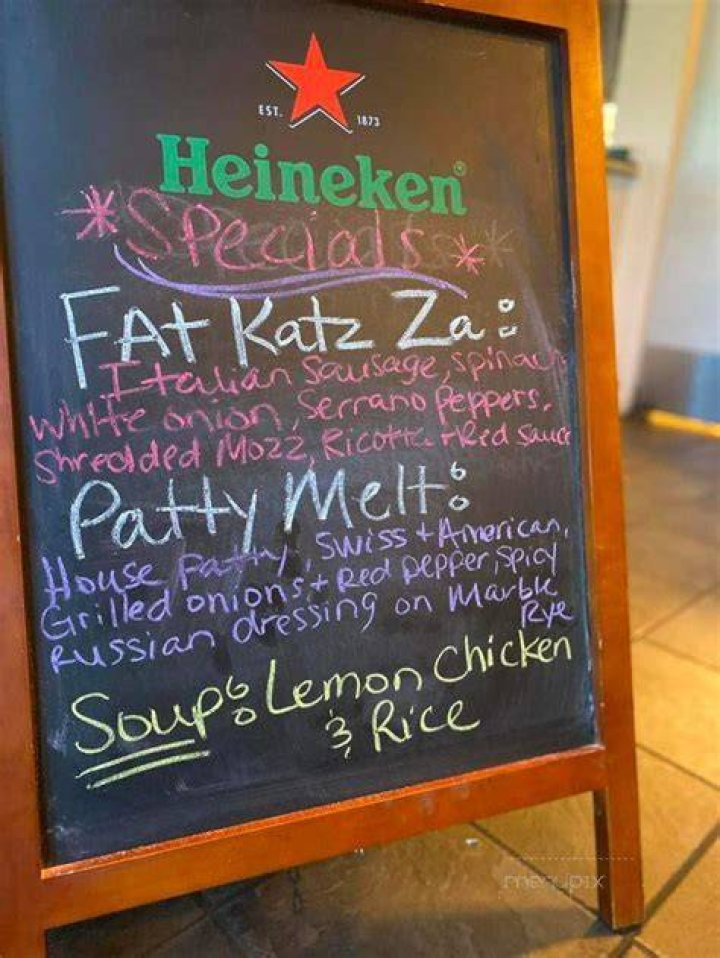 EST. 1873
Heineken®
*Specials*
FAt Katz Za:
Italian Sausage, spinach
white onion, Serrano Peppers,
Shredded Mozz, Ricotta + Red sauce
Patty Melt:
House patty, swiss + American,
Grilled onions + Red pepper, spicy
Russian dressing on Marble
Rye
Soup: Lemon Chicken
& Rice
menupix